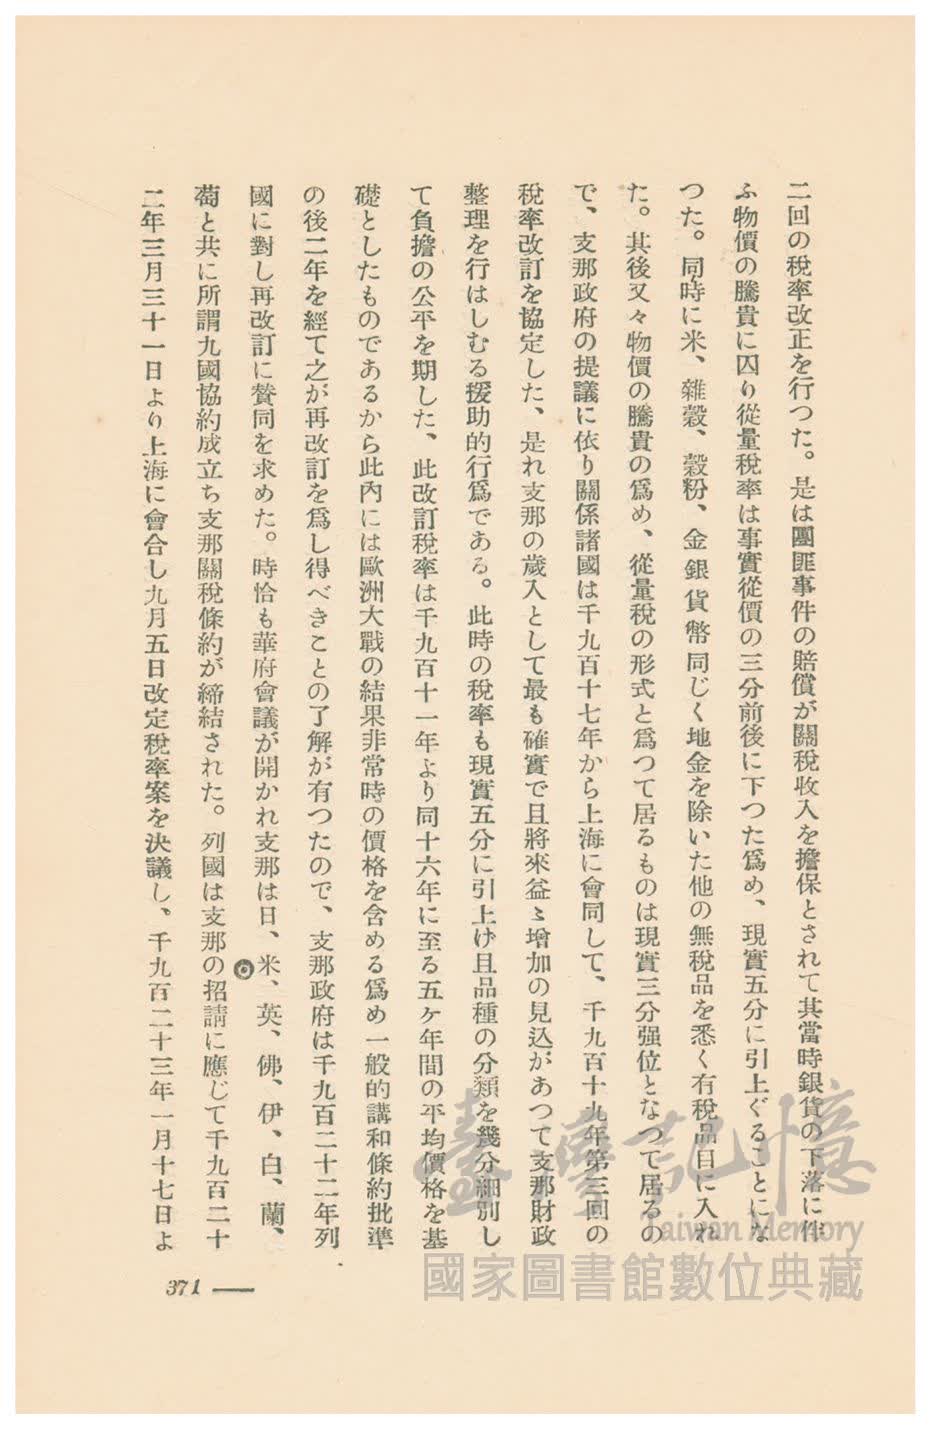 二回の稅率改正を行つた。是は團匪事件の賠償が關稅收入を擔保とされて其當時銀貨の下落に伴
ふ物價の騰貴に因り從量稅率は事實從價の三分前後に下つた爲め、現實五分に引上ぐることにな
つた。同時に米、雜穀、穀粉、金銀貨幣同じく地金を除いた他の無稅品を悉く有稅品目に入れ
た。其後又々物價の騰貴の爲め、從量稅の形式と爲つて居るものは現實三分强位となつて居るの
で、支那政府の提議に依り關係諸國は千九百十七年から上海に會同して、千九百十九年第三回の
稅率改訂を協定した、是れ支那の歲入として最も確實で且將來益〻增加の見込があつて支那財政
整理を行はしむる援助的行爲である。此時の稅率も現實五分に引上げ且品種の分類を幾分細別し
て負擔の公平を期した、此改訂稅率は千九百十一年より同十六年に至る五ケ年間の平均價格を基
礎としたものであるから此內には歐洲大戰の結果非常時の價格を含める爲め一般的講和條約批準
の後二年を經て之が再改訂を爲し得べきことの了解が有つたので、支那政府は千九百二十二年列
國に對し再改訂に贊同を求めた。時恰も華府會議が開かれ支那は日、米、英、佛、伊、白、蘭、
萄と共に所謂九國協約成立ち支那關稅條約が締結された。列國は支那の招請に應じて千九百二十
二年三月三十一日より上海に會合し九月五日改定稅率案を決議し。千九百二十三年一月十七日よ
371 —
臺灣記憶
Taiwan Memory
國家圖書館數位典藏